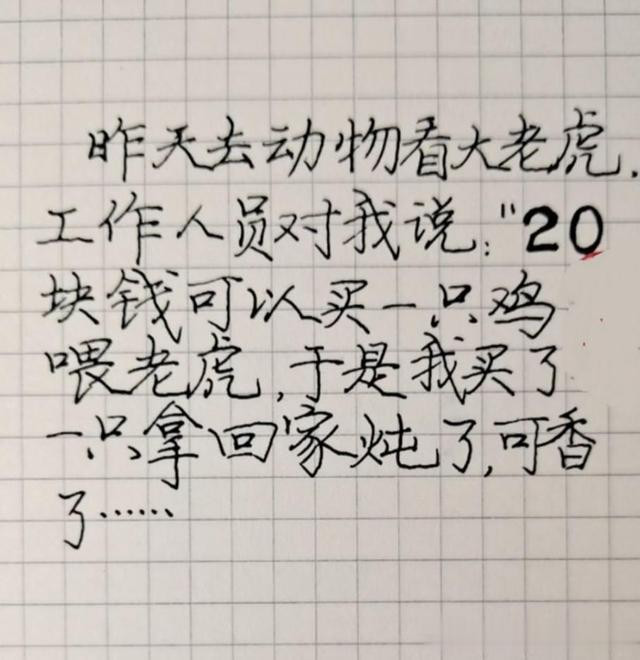 昨天去动物看大老虎,
工作人员对我说:"20
块钱可以买一只鸡
喂老虎,于是我买了
一只拿回家炖了,可香
了……